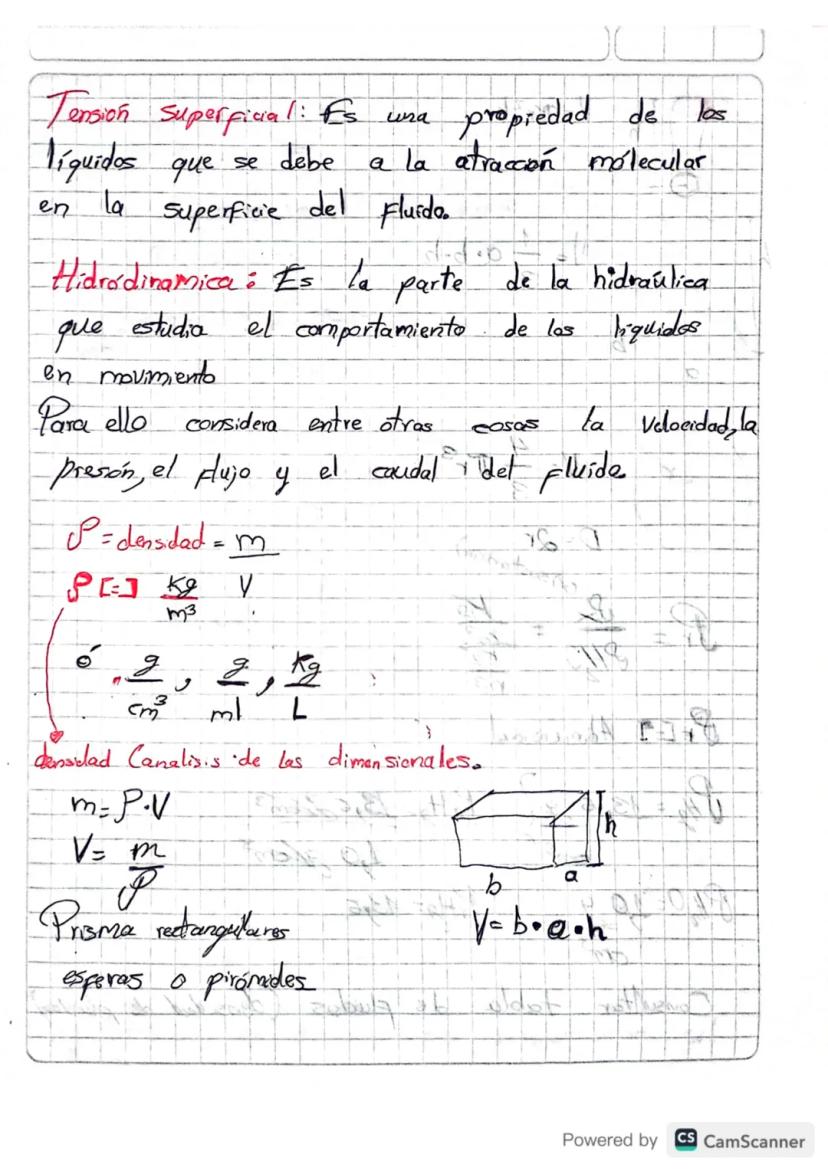 Tensión superficial: Es una propiedad de los
líquidos que se debe a la atracción mólecular
en la superficie del fluido.
Hidródinamica: Es la parte de la hidraúlica
que estudia el comportamiento de los líquidos
en movimiento
Para ello considera entre otras cosas la velocidad, la
presión, el flujo y el caudal del fluido
ρ = densidad = m
V
ρ [=] Kg
m³
ó g , g , Kg
cm³ ml L
densidad (analisis de las dimensionales.
m = ρ · V
V = m
ρ
h
b a
V = b · a · h
Prisma rectangulares
esferas o pirámides
Powered by CS CamScanner